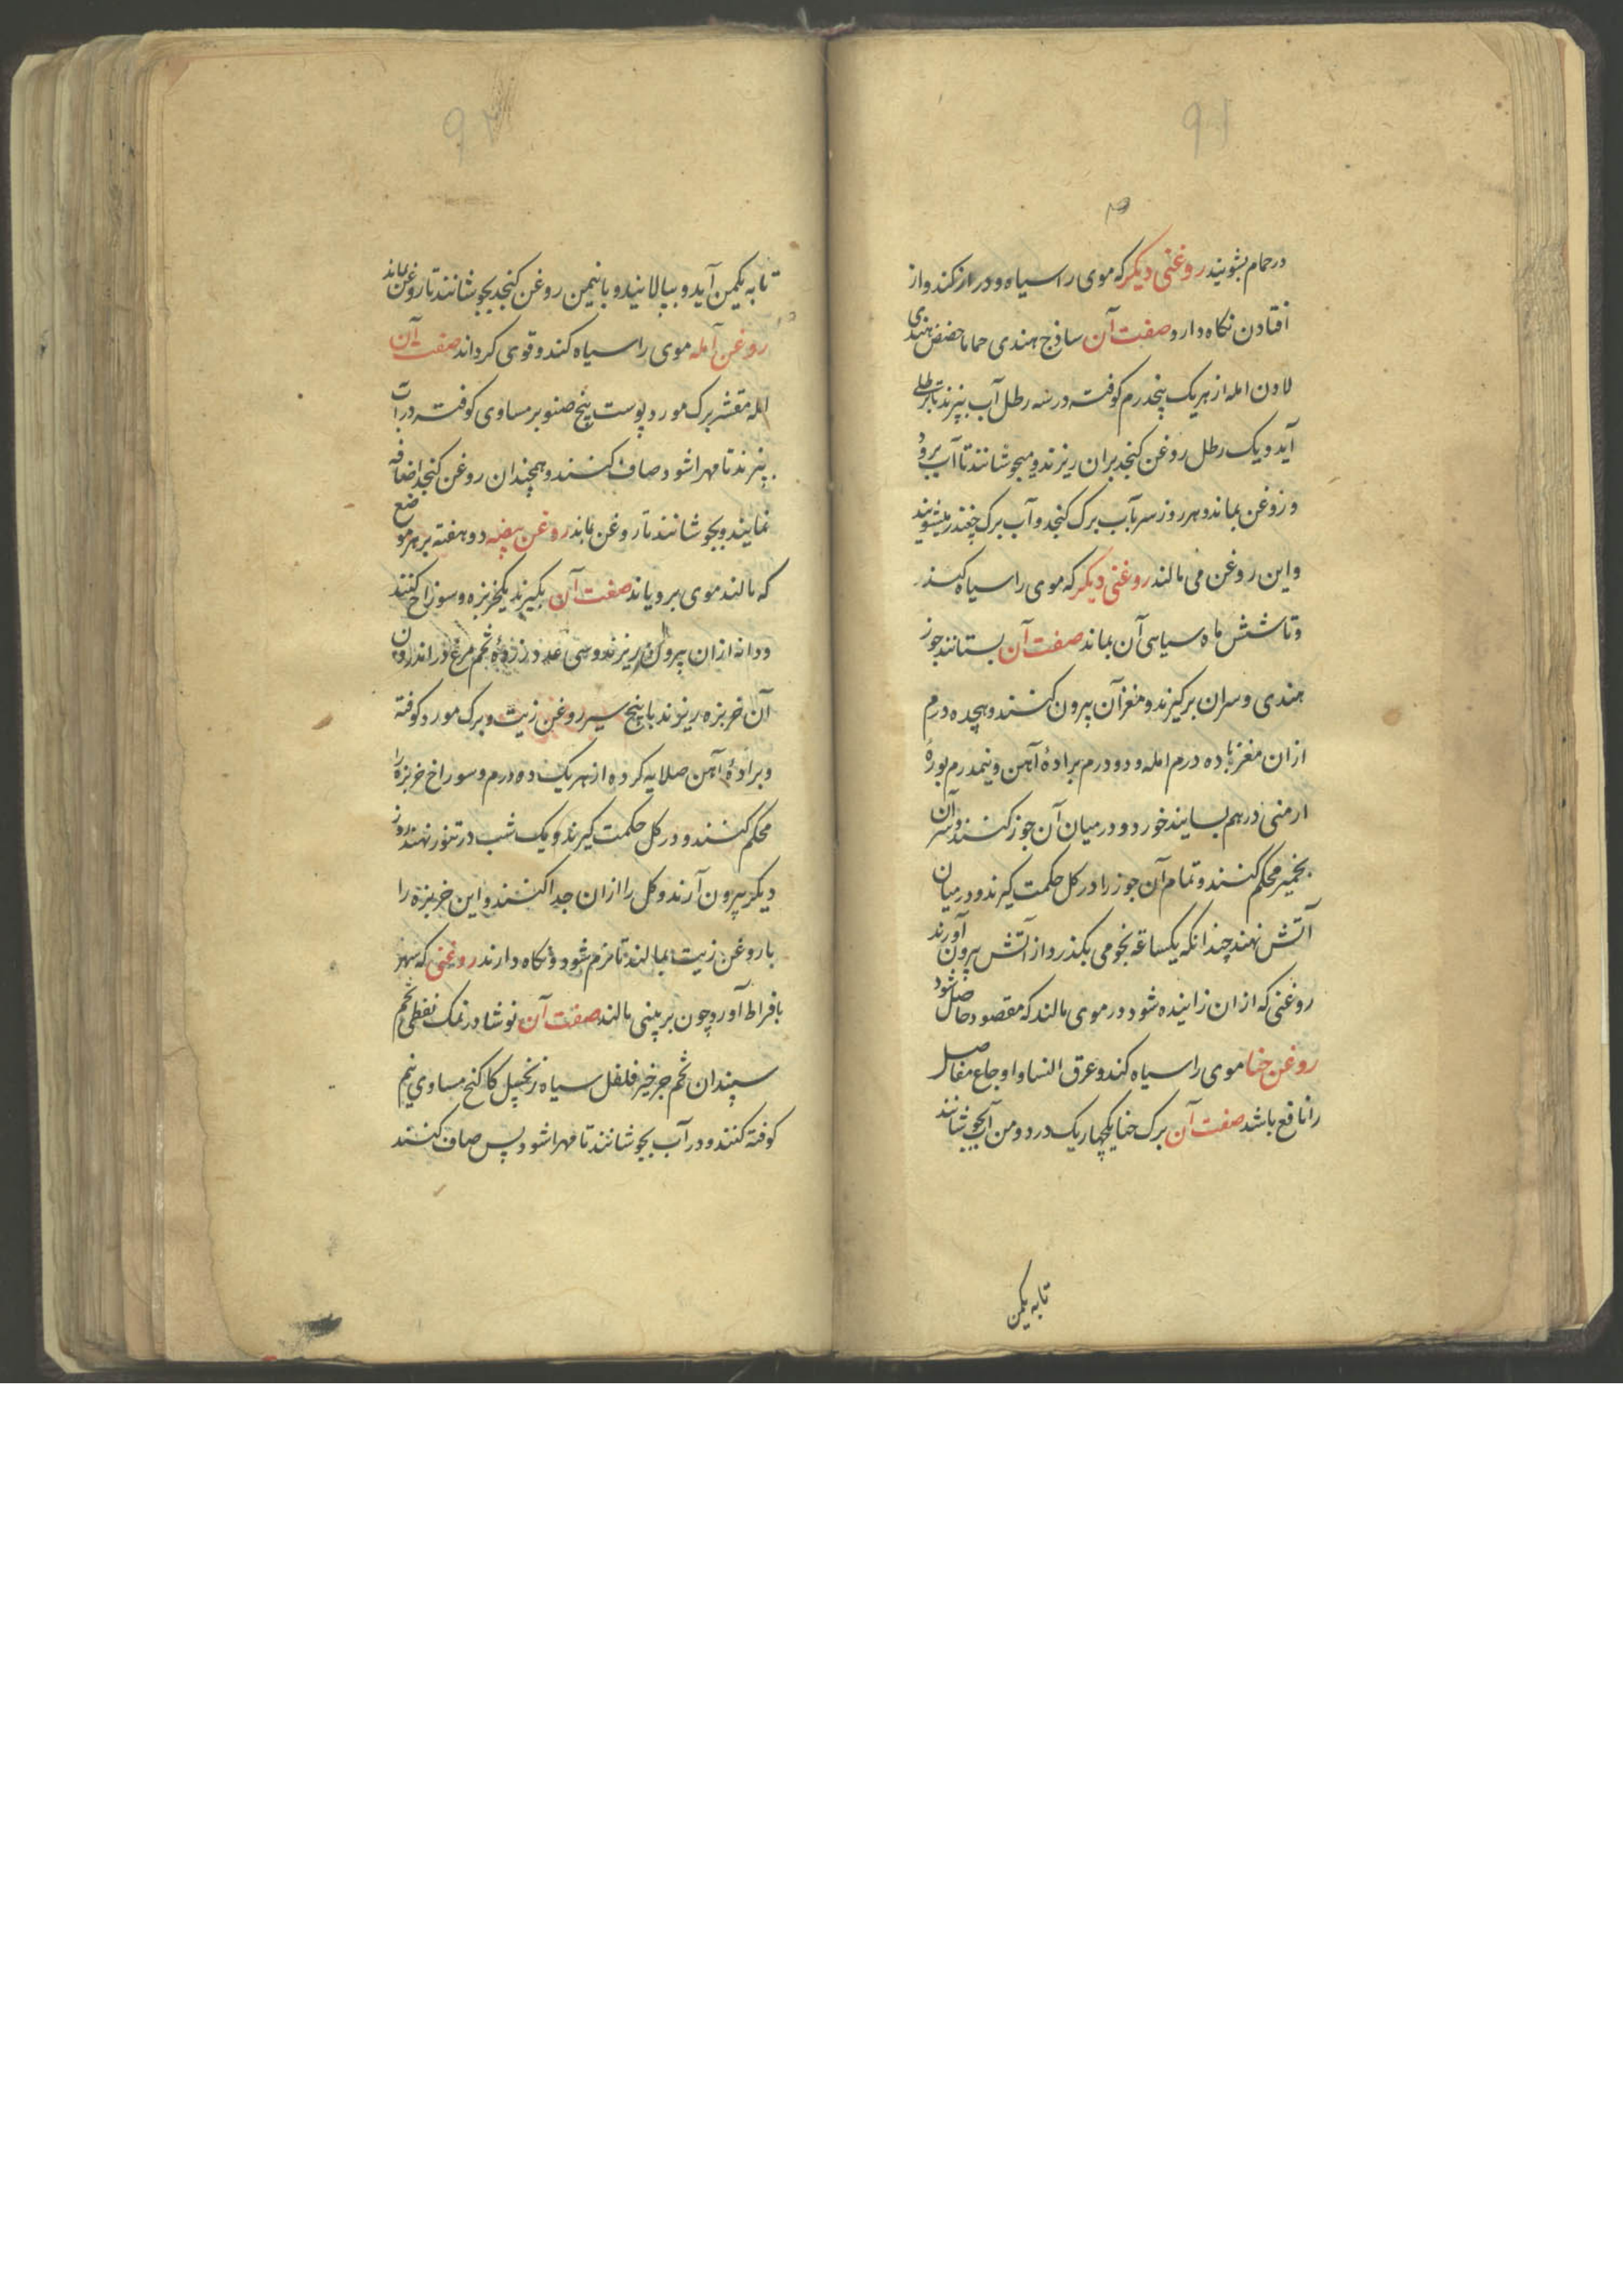 ۹۱
در حمام بشویند روغنی دیکر که موی را سیاه و دراز کند و از
افتادن نکاه دارد صفت آن ساذج هندی حماما حضض هندی
لادن امله از هریک پنجدرم کوفته در سه رطل آب بپزند تا برطلی
آید و یک رطل روغن کنجد بران ریزند و میجوشانند تا آب برود
و روغن بماند و هر روز سر بآب برک کنجد و آب برک چغندر میشویند
و این روغن می مالند روغنی دیکر که موی را سیاه کند
و تا شش ماه سیاهی آن بماند صفت آن بستانند جوز
هندی و سران برکیرند و مغز آن بیرون کنند و هجده درم
ازان مغز با ده درم امله و دو درم برادهٔ آهن و نیمدرم بورهٔ
ارمنی در هم بسایند خورد و در میان آن جوز کنند و سر آن
بخمیر محکم کنند و تمام آن جوز را در کل حکمت کیرند و در میان
آتش نهند چندانکه یکساعه نجومی بکذرد از آتش بیرون آورند
روغنی که ازان زاینده شود در موی مالند که مقصود حاصل شود
روغن حنا موی را سیاه کند و عرق النسا و اوجاع مفاصل
را نافع باشد صفت آن برک حنا یکچهاریک در دو من آب بجوشانند
تا به یکمن
۹۲
تا به یکمن آید و بپالانید و با نیمن روغن کنجد بجوشانند تا روغن بماند
روغن آمله موی را سیاه کند و قوی کرداند صفت آن
امله مقشر برک مورد پوست بیخ صنوبر مساوی کوفته در آب
بپزند تا مهرا شود صاف کنند و همچندان روغن کنجد اضافه
نمایند و بجوشانند تا روغن بماند روغن بیضه دو هفته بر هر موضع
که مالند موی برویاند صفت آن بکیرند یکخربزه و سوراخ کنند
و دانه ازان بیرون ریزند و سی عدد زردهٔ تخم مرغ در اندرون
آن خربزه ریزند با پنج سیر روغن زیت و برک مورد کوفته
و برادهٔ آهن صلایه کرده از هریک دو درم و سوراخ خربزه را
محکم کنند و در کل حکمت کیرند و یک شب در تنور نهند روز
دیکر بیرون آرند و کل را ازان جدا کنند و این خربزه را
با روغن زیت بمالند تا نرم شود و نکاه دارند روغنی که سهر
بافراط آورد چون بر بینی مالند صفت آن نوشادر نمک نفطی تخم
سپندان تخم جرخیر فلفل سیاه زنجبیل کاکنج مساوی نیم
کوفته کنند و در آب بجوشانند تا مهرا شود پس صاف کنند